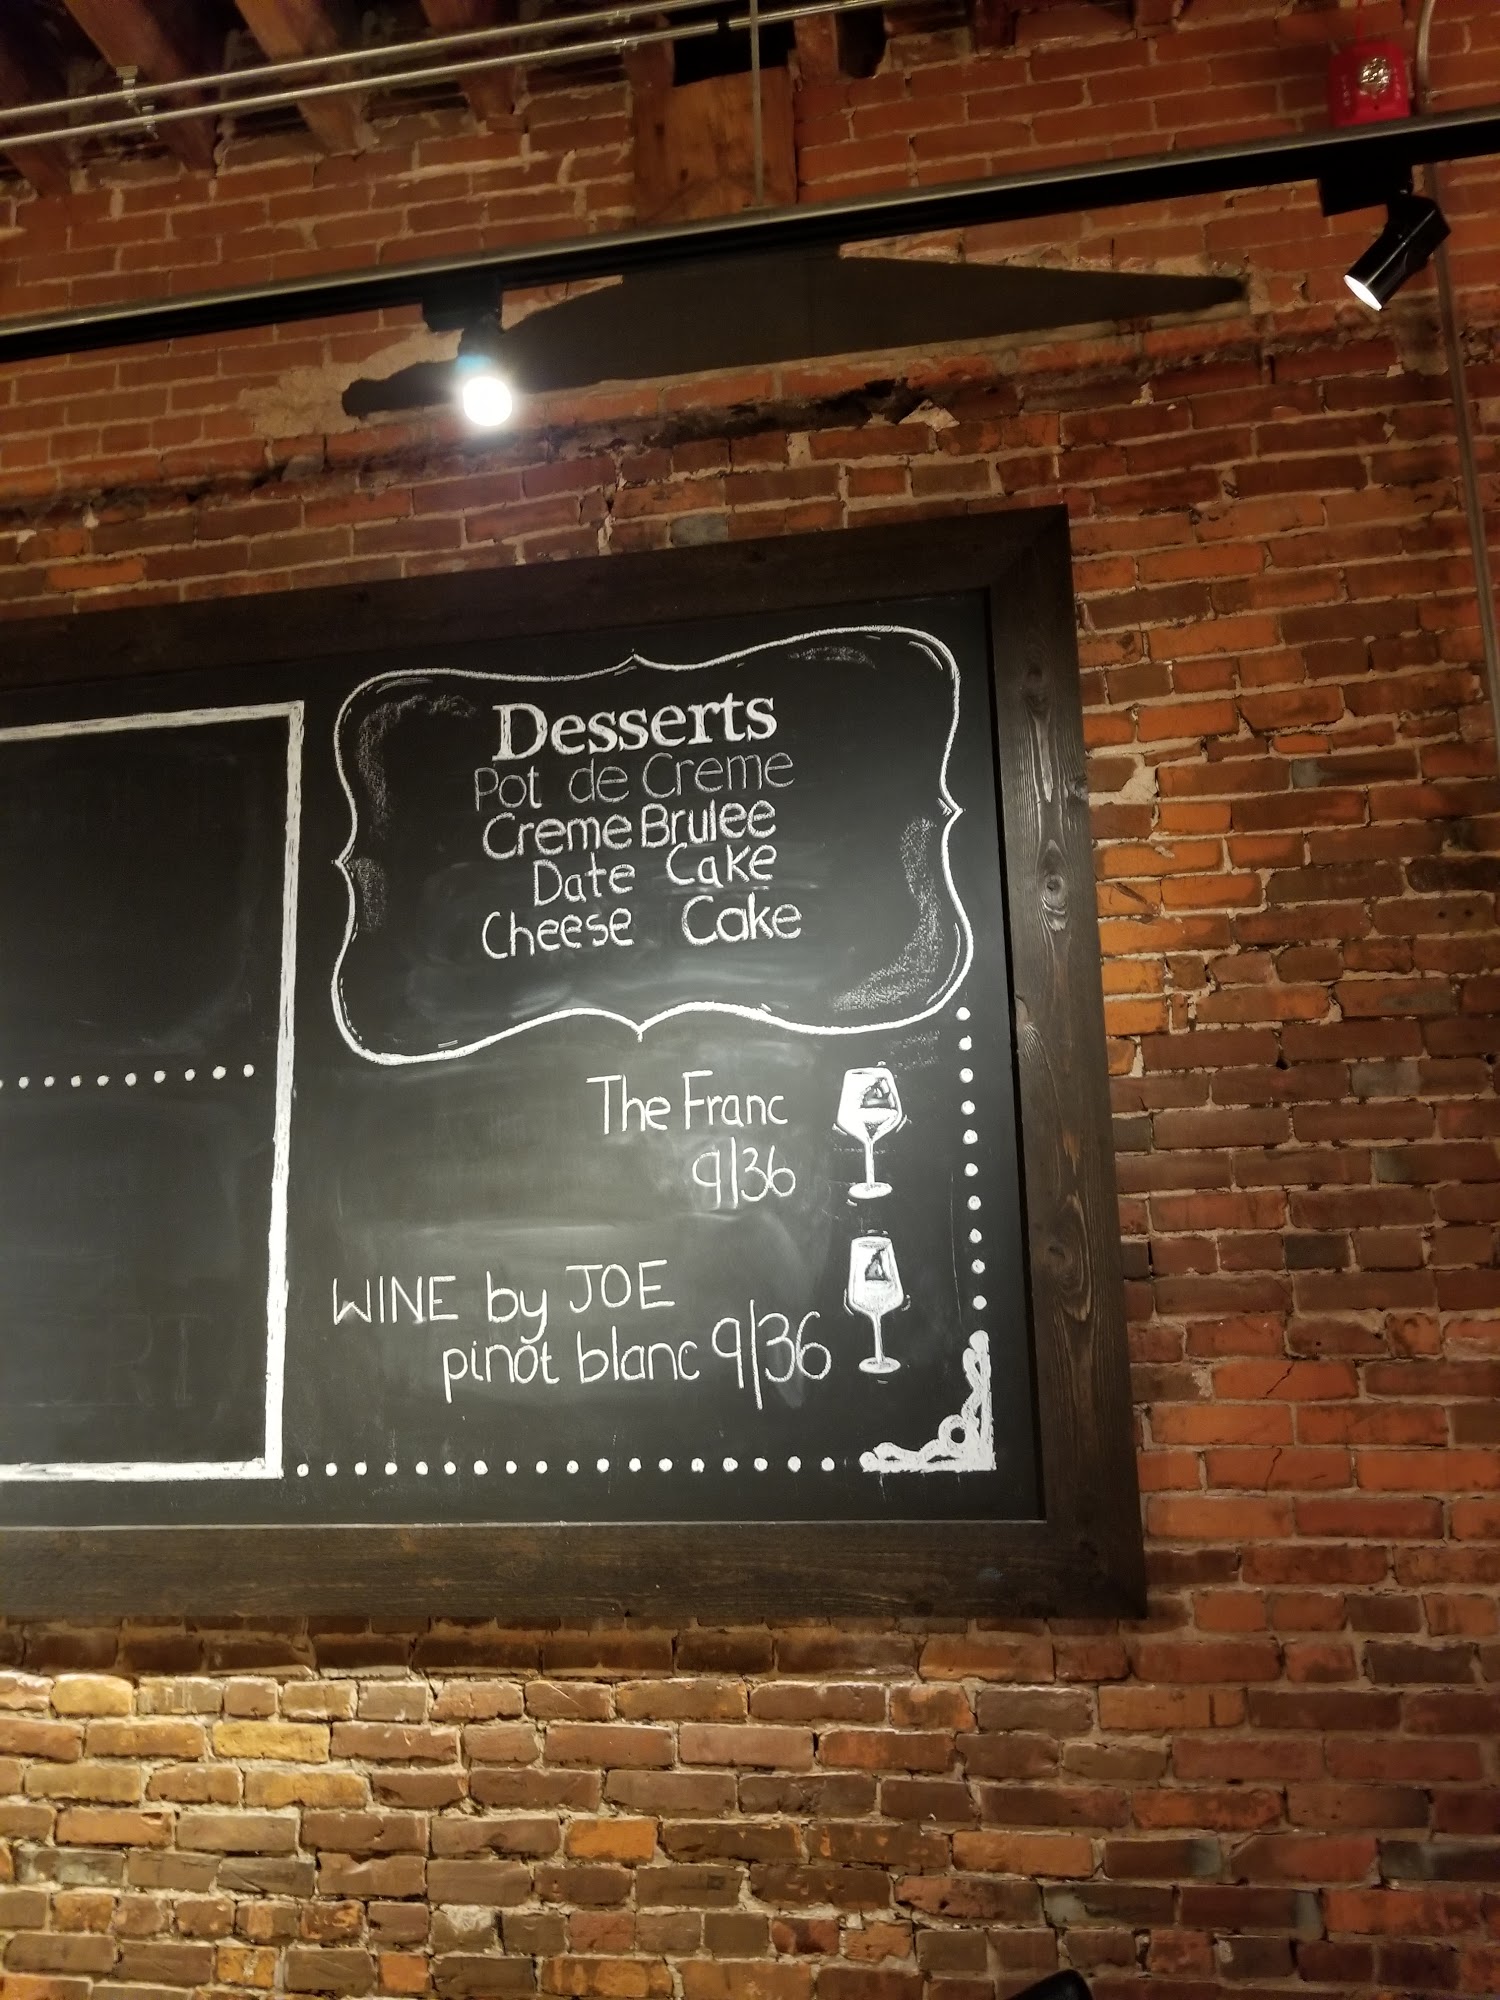 Desserts
Pot de Creme
Creme Brulee
Date Cake
Cheese Cake
The Franc
9/36
WINE by JOE
pinot blanc 9/36